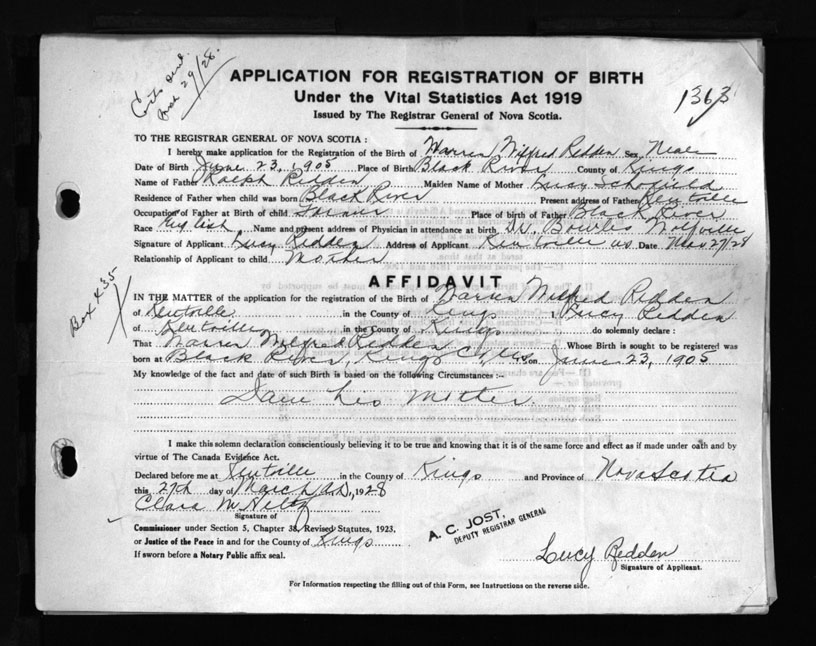 Certs send
Mar 29/28.
1363
APPLICATION FOR REGISTRATION OF BIRTH
Under the Vital Statistics Act 1919
Issued by The Registrar General of Nova Scotia.
TO THE REGISTRAR GENERAL OF NOVA SCOTIA :
I hereby make application for the Registration of the Birth of Warren Wilfred Redden Sex Male
Date of Birth June 23, 1905 Place of Birth Black River County of Kings
Name of Father Ralph Redden Maiden Name of Mother Lucy Schofield
Residence of Father when child was born Black River Present address of Father Kentville
Occupation of Father at Birth of child Farmer Place of birth of Father Black River
Race English Name and present address of Physician in attendance at birth Dr. Bowles Wolfville
Signature of Applicant Lucy Redden Address of Applicant Kentville NS Date Mar 27/28
Relationship of Applicant to child Mother
Box 435
AFFIDAVIT
IN THE MATTER of the application for the registration of the Birth of Warren Wilfred Redden
of Kentville in the County of Kings I Lucy Redden
of Kentville in the County of Kings do solemnly declare :
That Warren Wilfred Redden Whose Birth is sought to be registered was
born at Black River, Kings Co, N.S. on June 23, 1905
My knowledge of the fact and date of such Birth is based on the following Circumstances :-
I am his Mother.
I make this solemn declaration conscientiously believing it to be true and knowing that it is of the same force and effect as if made under oath and by
virtue of The Canada Evidence Act.
Declared before me at Kentville in the County of Kings and Province of Nova Scotia
this 27th day of March A.D., 1928
Clara M
Signature of
Commissioner under Section 5, Chapter 38, Revised Statutes, 1923.
or Justice of the Peace in and for the County of Kings
If sworn before a Notary Public affix seal.
A. C. JOST,
DEPUTY REGISTRAR GENERAL
Lucy Redden
Signature of Applicant.
For Information respecting the filling out of this Form, see Instructions on the reverse side.